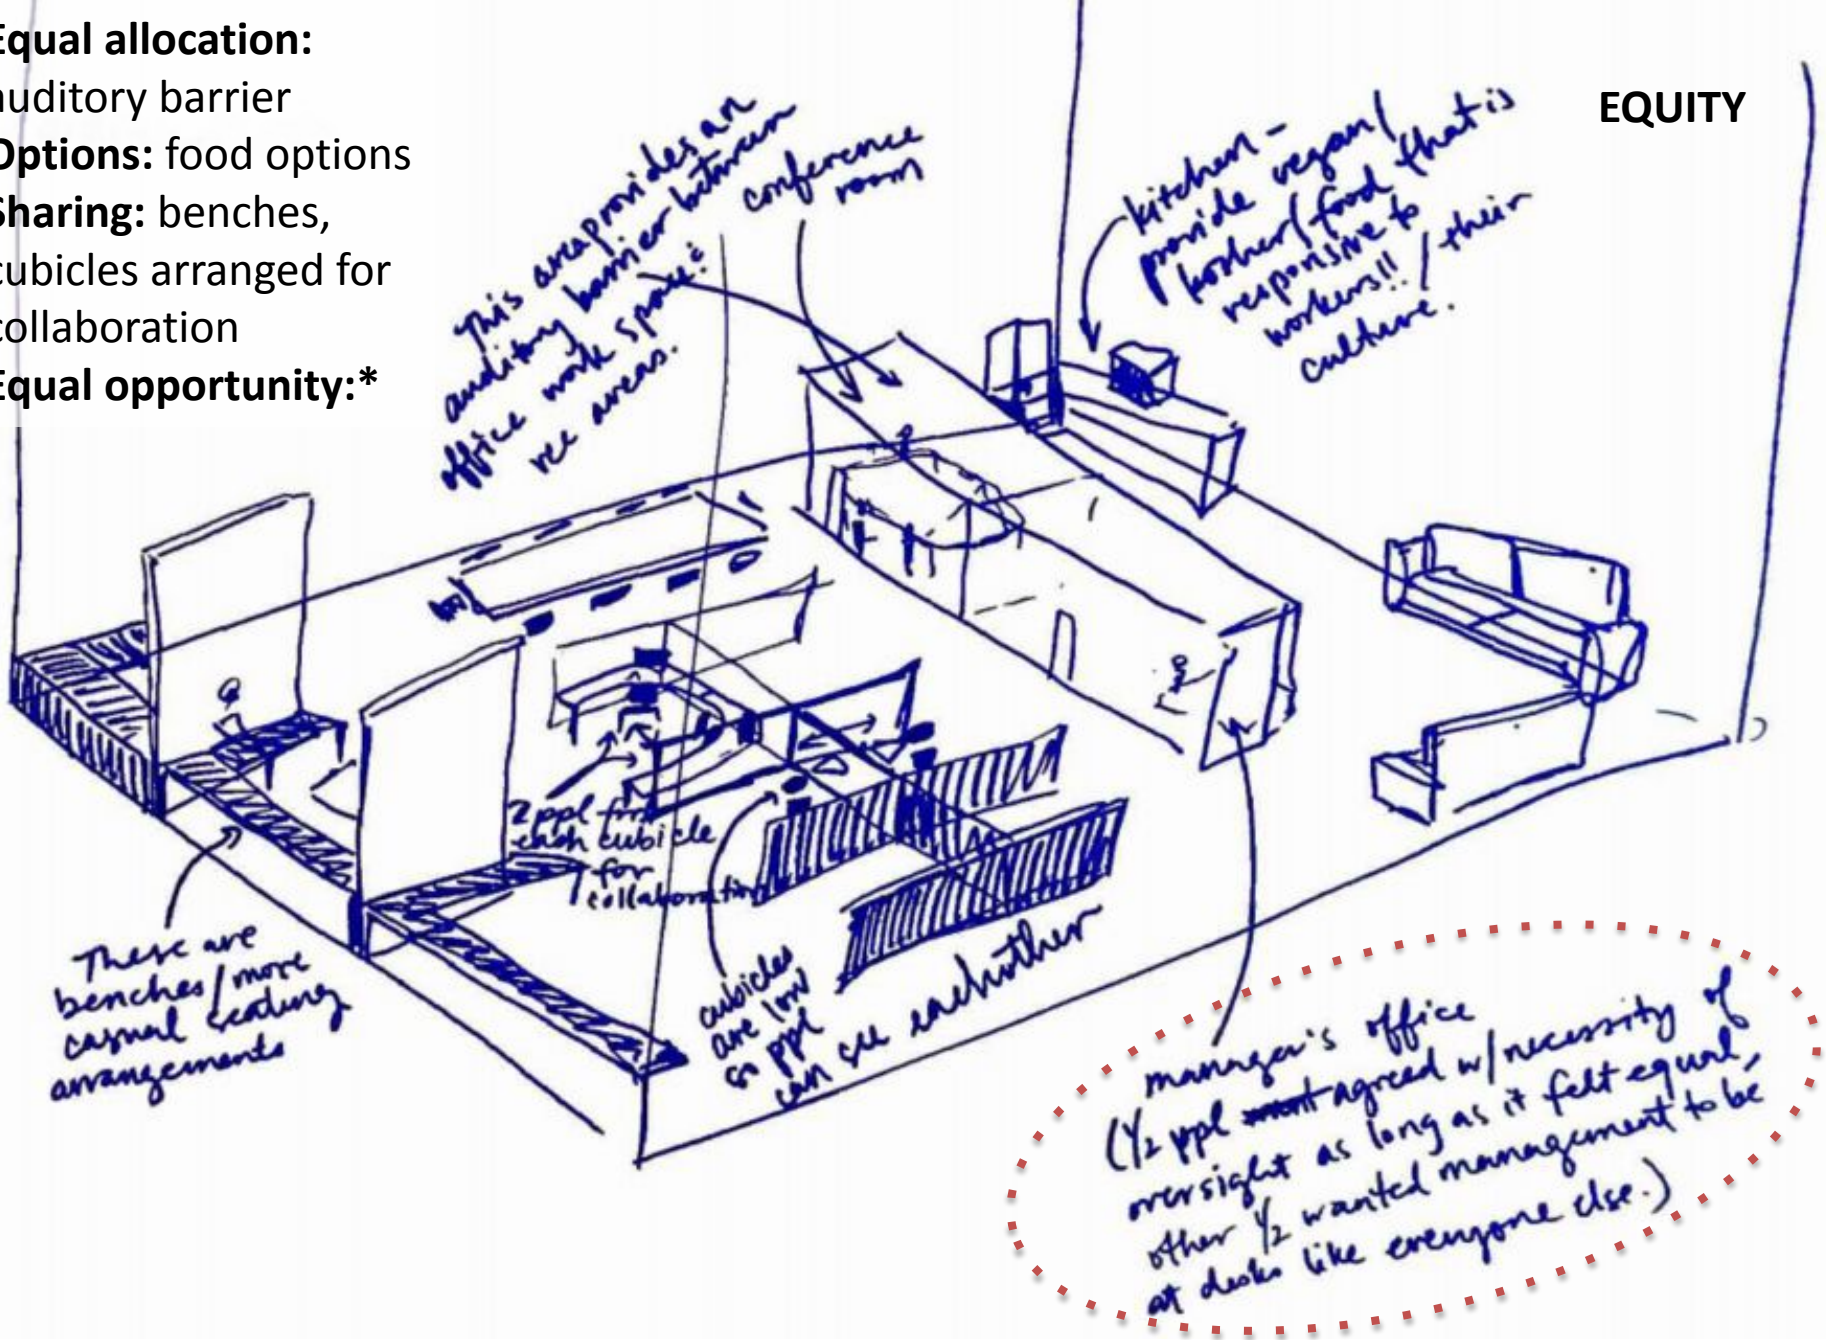 Equal allocation:
auditory barrier
Options: food options
Sharing: benches,
cubicles arranged for
collaboration
Equal opportunity:*
EQUITY
This area provides an
auditory barrier between
office work space &
rec areas.
conference
room
kitchen -
provide vegan/
kosher/food that is
responsive to
workers!! / their
culture.
2 ppl
each cubicle
for
collaboration
These are
benches/more
casual seating
arrangements
cubicles
are low
so ppl
can see eachother
manager's office
(1/2 ppl want agreed w/necessity of
oversight as long as it felt equal,
other 1/2 wanted management to be
at desks like everyone else.)